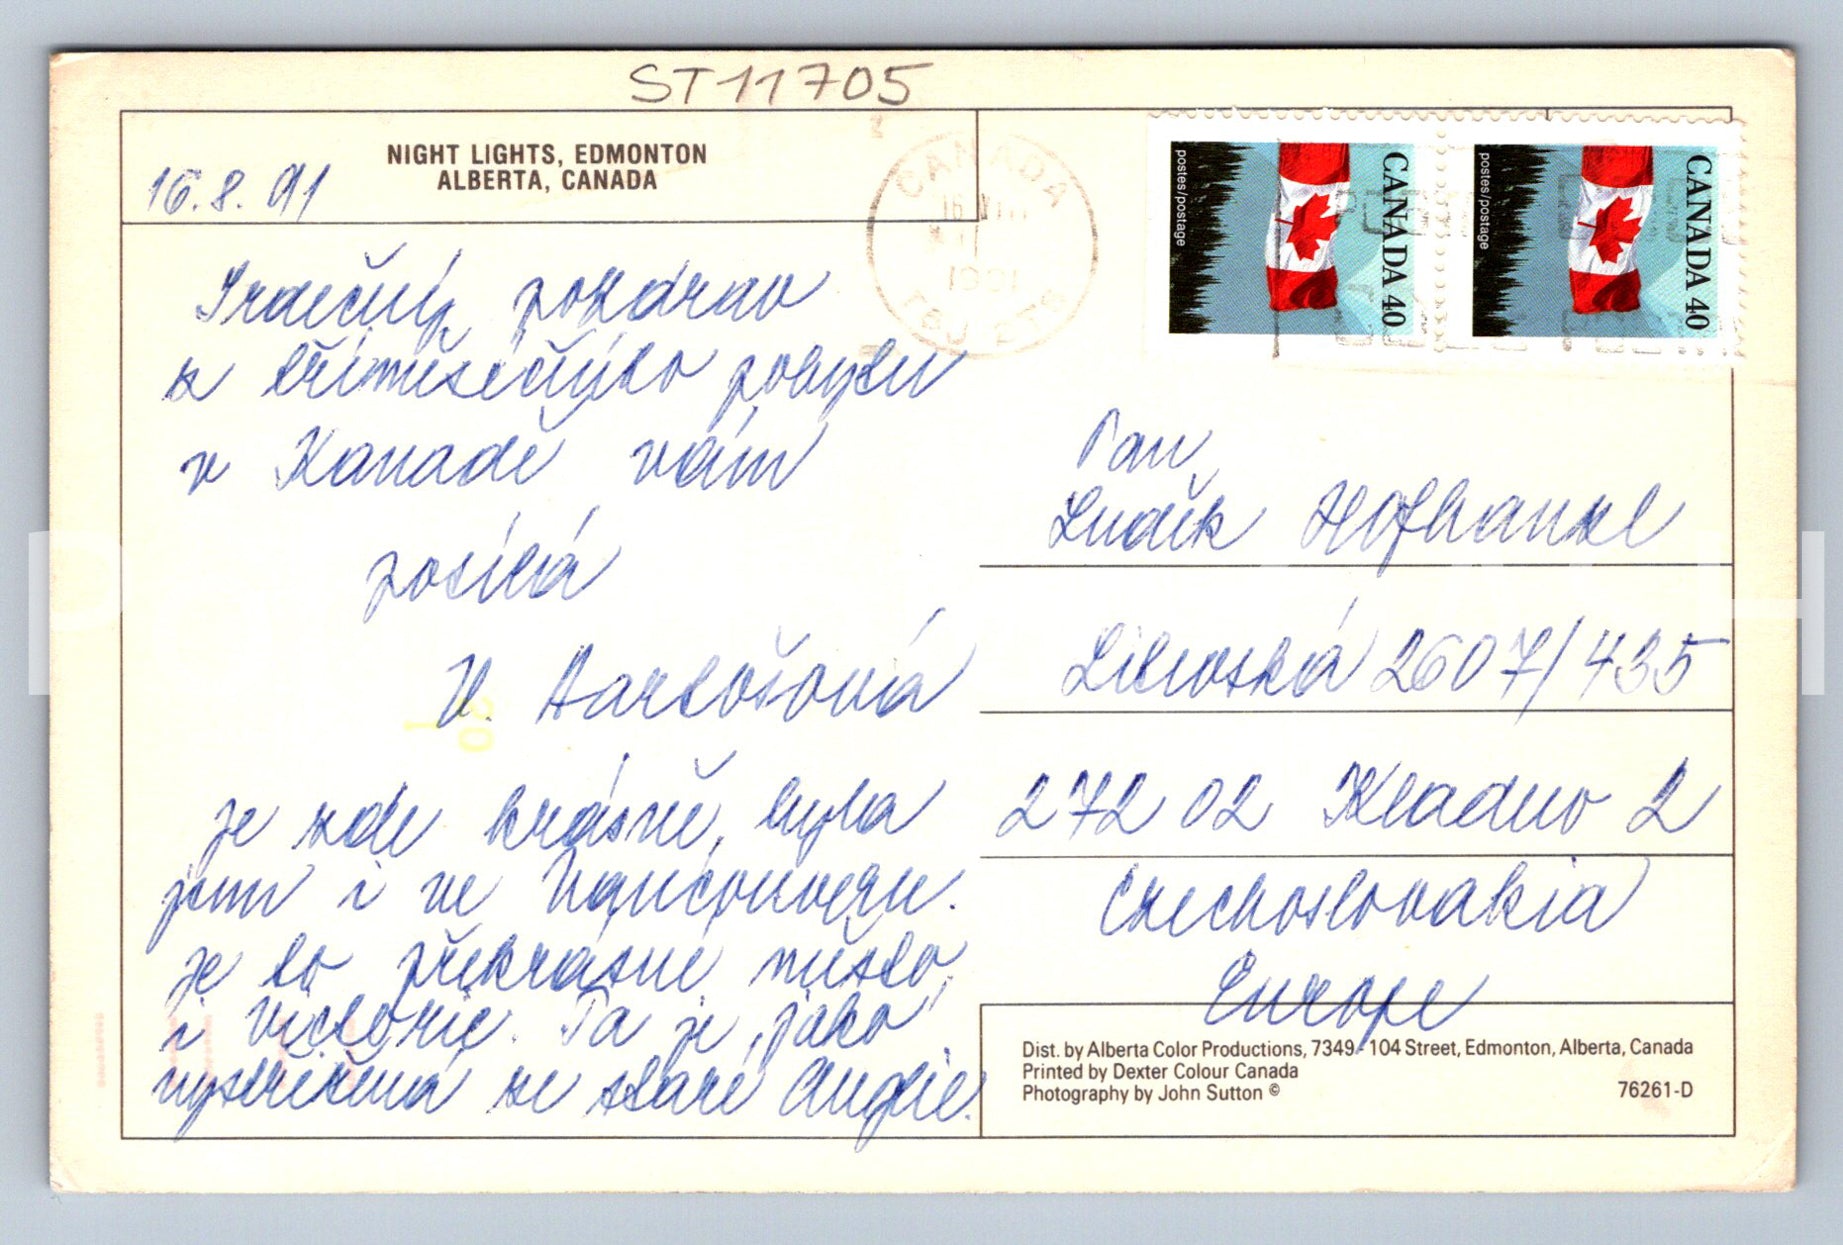 ST11705
NIGHT LIGHTS, EDMONTON
ALBERTA, CANADA
16.8.91
Srdečný pozdrav
z tříměsíčního pobytu
v Kanadě vám
posílá
V. Bartošová
je zde krásně, byla
jsem i ve Vancouveru.
je to překrásné město,
i Victorie. Ta je jako
vystřižená ze staré Anglie.
CANADA
CANADA 40
postes/postage
CANADA 40
postes/postage
Pan
Luděk Hofhanzl
Libušská 2607/435
272 02 Kladno 2
Czechoslovakia
Europe
Dist. by Alberta Color Productions, 7349 - 104 Street, Edmonton, Alberta, Canada
Printed by Dexter Colour Canada
Photography by John Sutton ©
76261-D